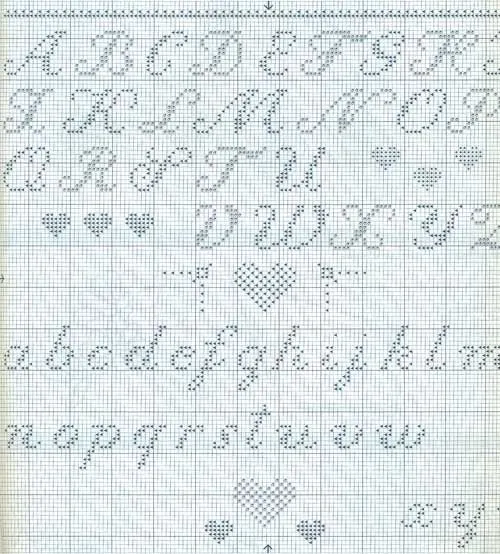 A B C D E F G H
J K L M N O P
Q R S T U
V W X Y Z
a b c d e f g h i j k l m
n o p q r s t u v w
x y